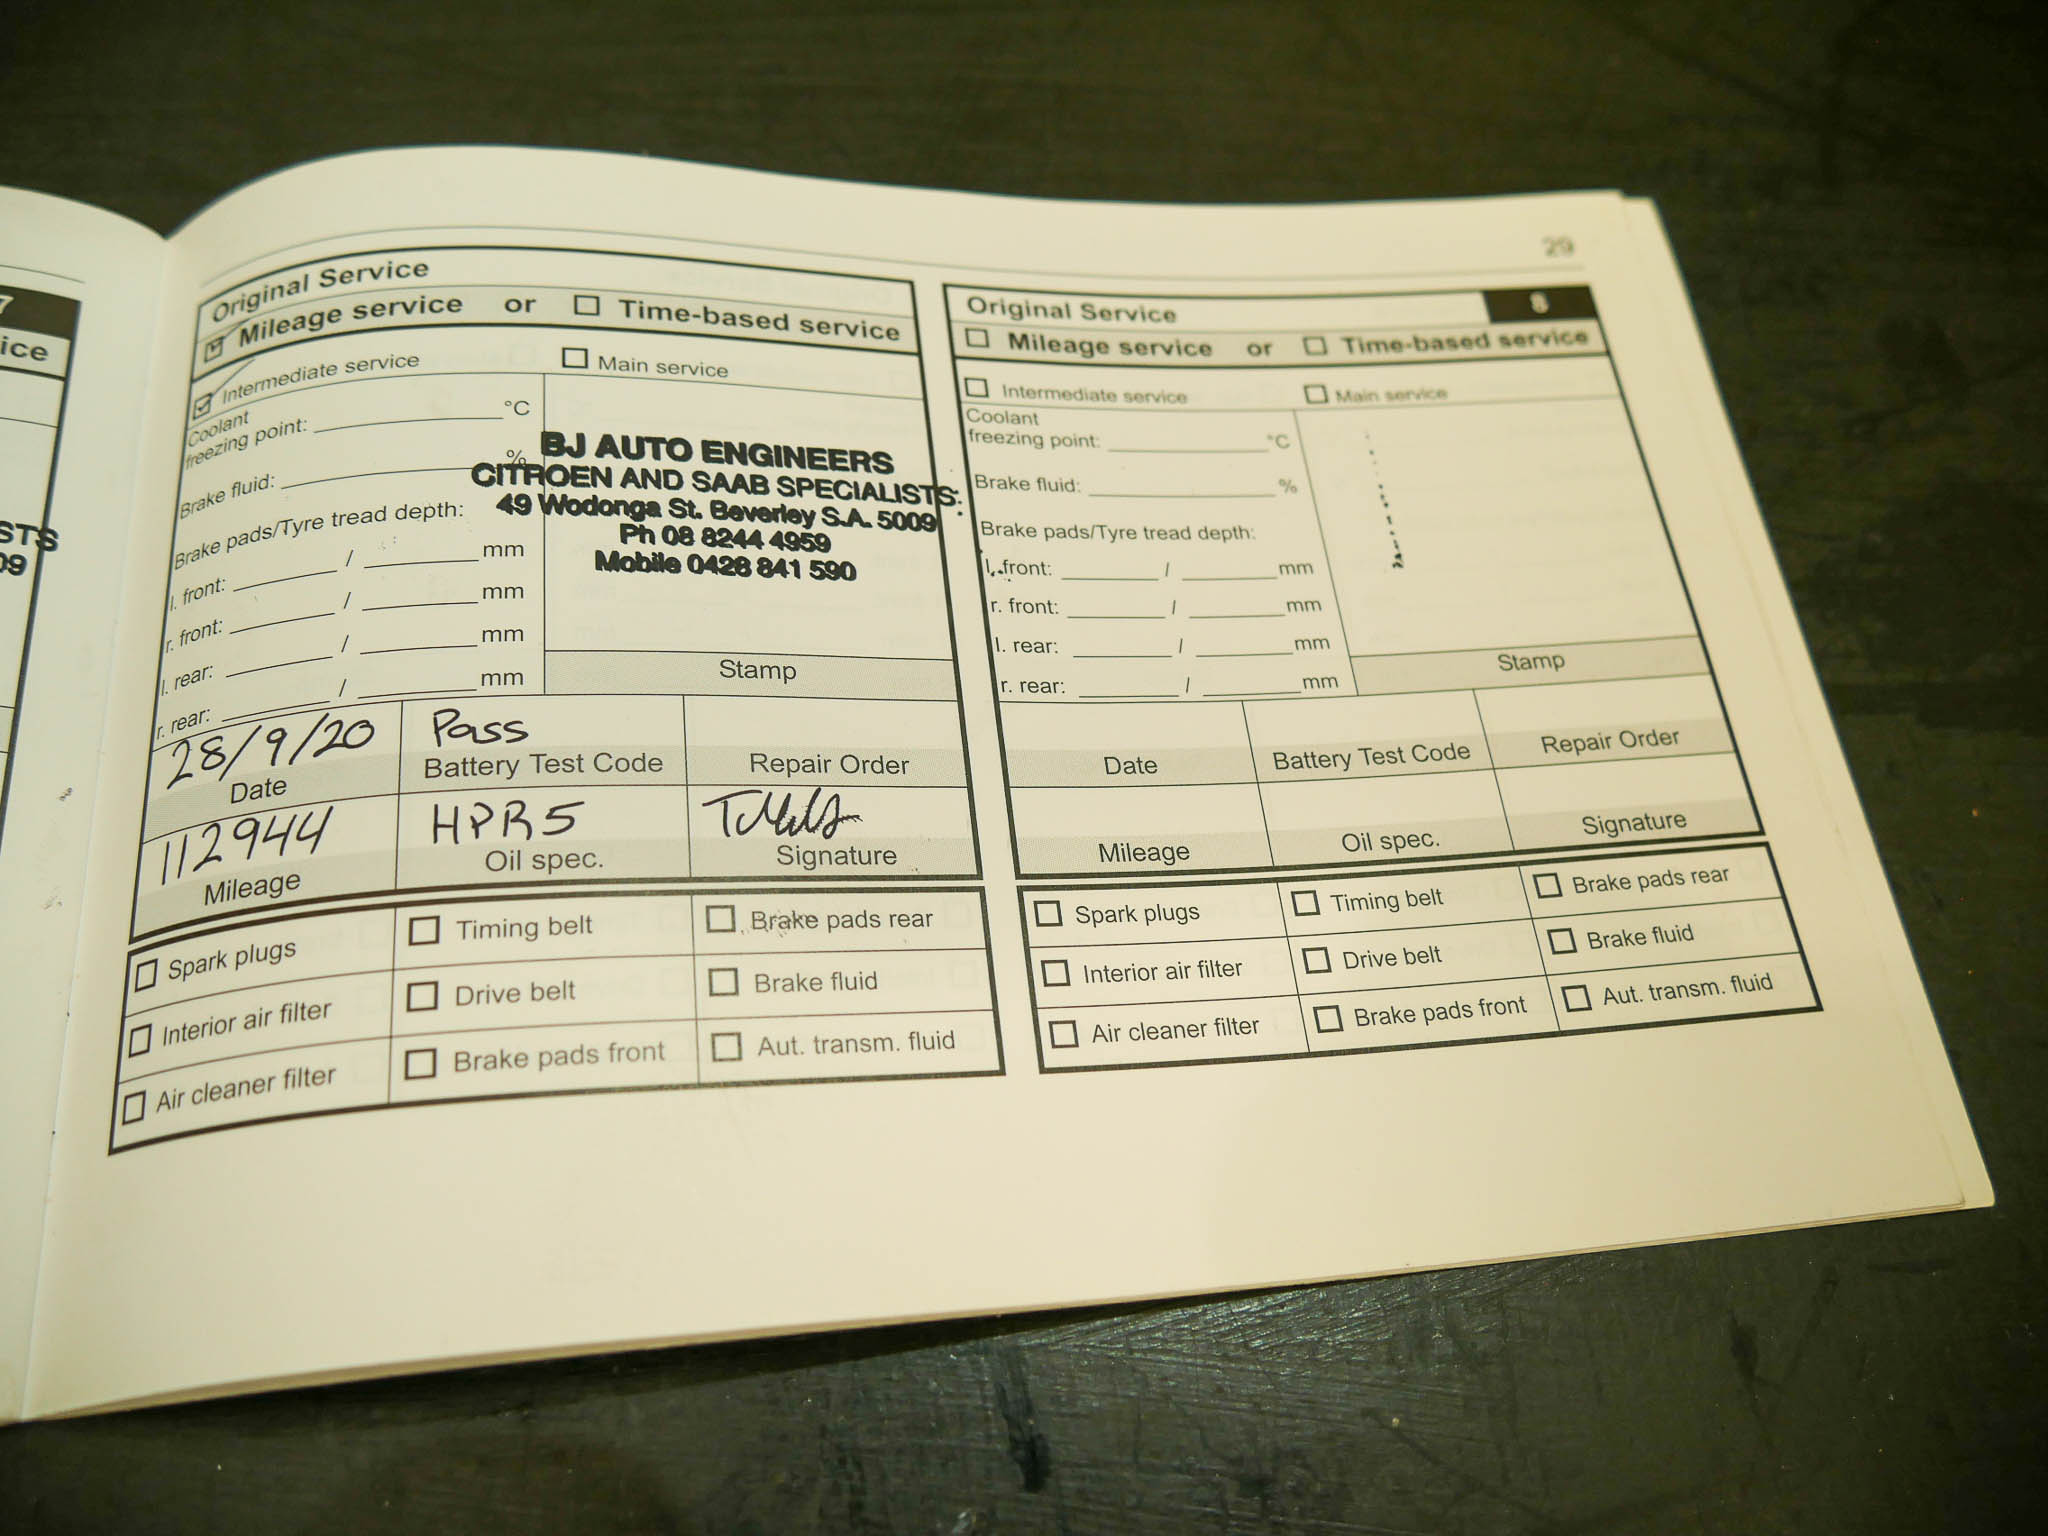 7
ice
STS
09
29
Original Service
Mileage service or Time-based service
Intermediate service Main service
Coolant
freezing point: °C
Brake fluid: %
Brake pads/Tyre tread depth:
l. front: / mm
r. front: / mm
l. rear: / mm
r. rear: / mm
BJ AUTO ENGINEERS
CITROEN AND SAAB SPECIALISTS:
49 Wodonga St. Beverley S.A. 5009
Ph 08 8244 4959
Mobile 0428 841 590
Stamp
28/9/20 Pass
Date Battery Test Code Repair Order
112944 HPR5
Mileage Oil spec. Signature
Spark plugs Timing belt Brake pads rear
Interior air filter Drive belt Brake fluid
Air cleaner filter Brake pads front Aut. transm. fluid
Original Service 8
Mileage service or Time-based service
Intermediate service Main service
Coolant
freezing point: °C
Brake fluid: %
Brake pads/Tyre tread depth:
l. front: / mm
r. front: / mm
l. rear: / mm
r. rear: / mm
Stamp
Date Battery Test Code Repair Order
Mileage Oil spec. Signature
Spark plugs Timing belt Brake pads rear
Interior air filter Drive belt Brake fluid
Air cleaner filter Brake pads front Aut. transm. fluid